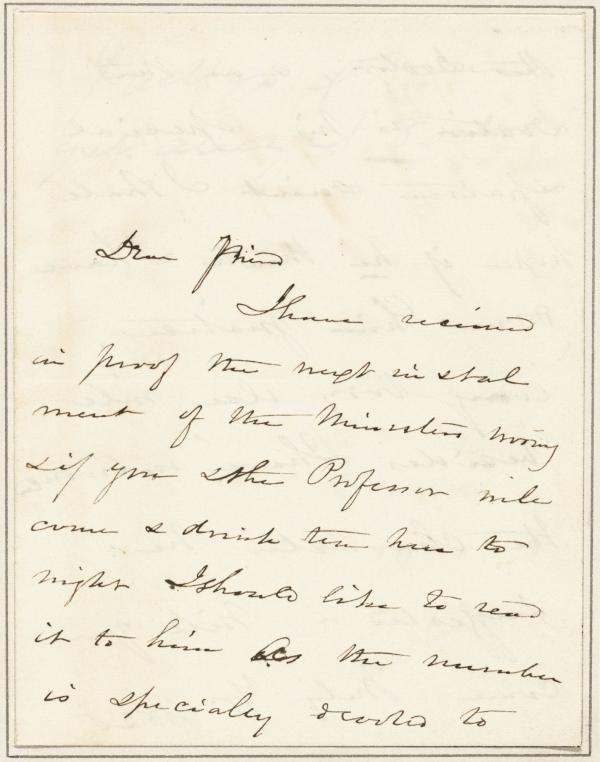 Dear Friend
I have recieved
in proof the next instal
ment of the Ministers wooing
& if you & the Professor will
come & drink tea here to
night I should like to read
it to him as the number
is specially devoted to